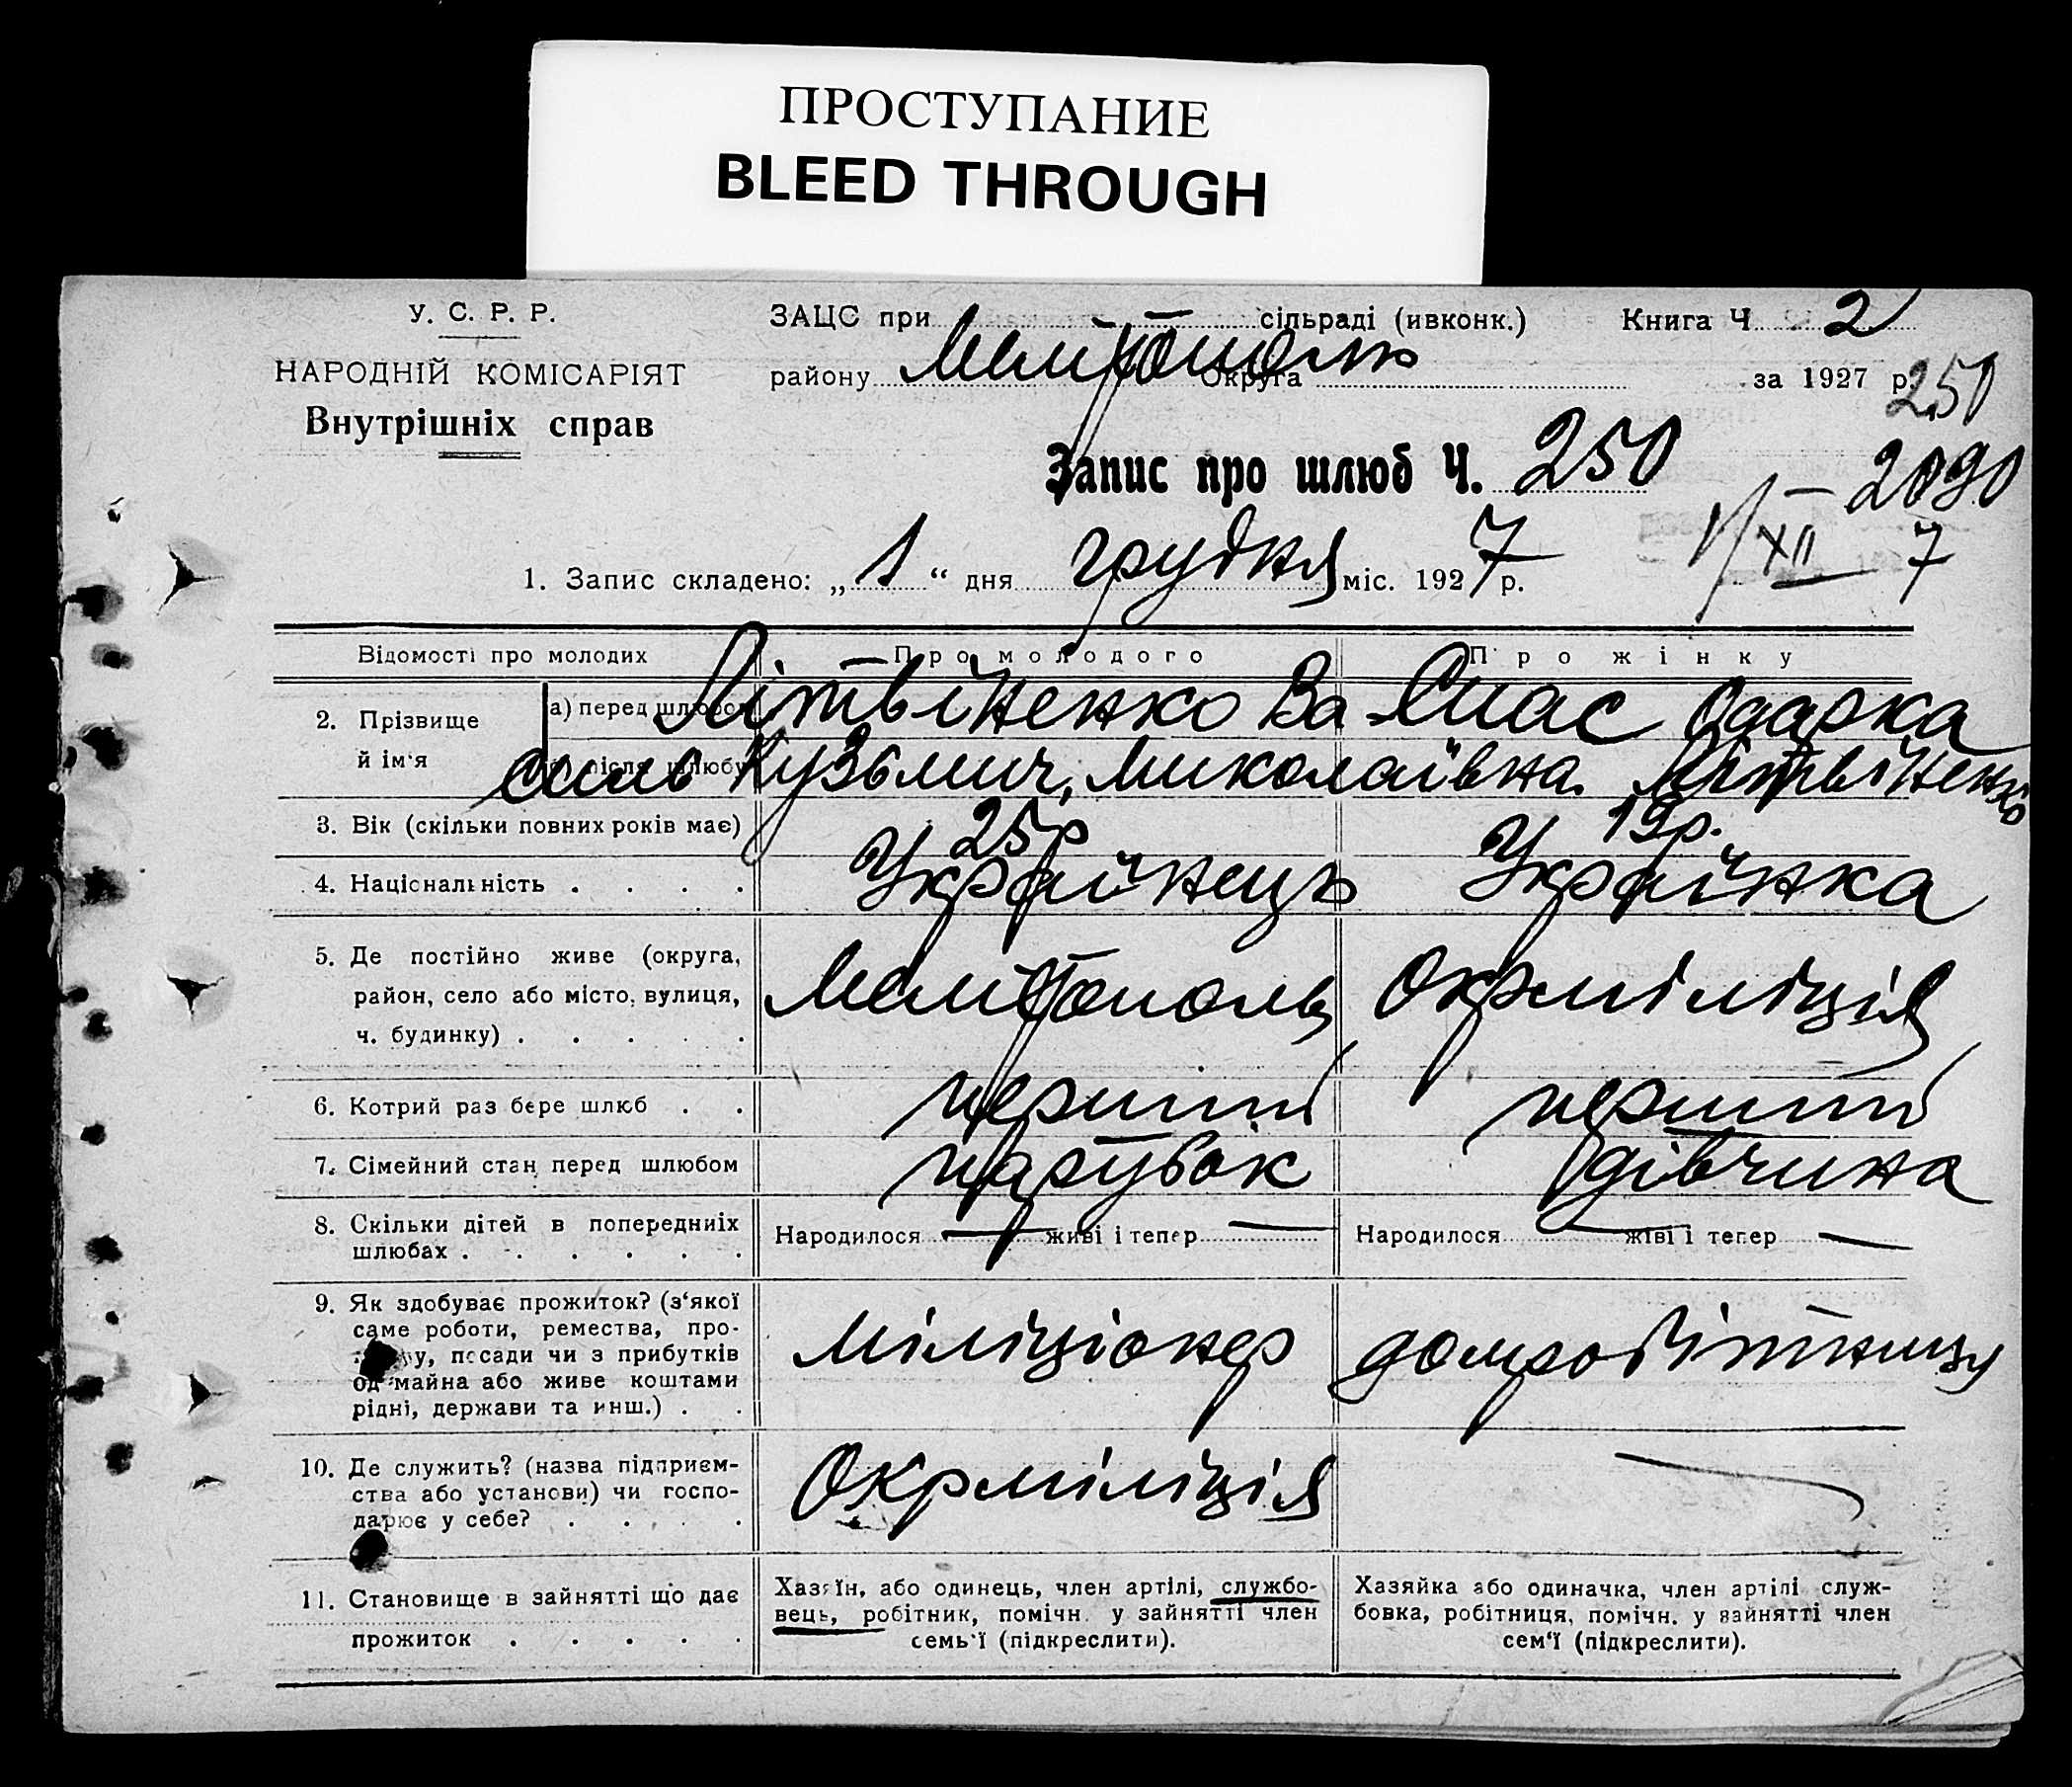 ПРОСТУПАНИЕ
BLEED THROUGH
У. С. Р. Р.
НАРОДНІЙ КОМІСАРІЯТ
Внутрішніх справ
ЗАЦС при сільраді (ивконк.) Книга Ч 2
району Мелітополь Округа за 1927 р.
250
Запис про шлюб Ч. 250
2090
1/XII 7
1. Запис складено: „ 1 “ дня грудня міс. 1927 р.
Відомості про молодих
Про молодого
Про жінку
2. Прізвище й ім'я
а) перед шлюбом
після шлюбу
Літвіненко Ва Одарка
силь Кузьмич, Миколаївна. Літвіненко
3. Вік (скільки повних років має) 25р 19р.
4. Національність . . . . Українець Українка
5. Де постійно живе (округа,
район, село або місто, вулиця,
ч. будинку) . . . . .
Мелітополь Окрміліція
6. Котрий раз бере шлюб . . перший перший
7. Сімейний стан перед шлюбом парубок дівчина
8. Скільки дітей в попередниіх
шлюбах . . . . . .
Народилося — живі і тепер — Народилося — живі і тепер —
9. Як здобуває прожиток? (з‘якої
саме роботи, ремества, про-
у, посади чи з прибутків
од майна або живе коштами
рідні, держави та инш.) . .
міліціонер домробітниця
10. Де служить? (назва підприєм-
ства або установи) чи госпо-
дарює у себе? . . . .
Окрміліція —
11. Становище в зайнятті що дає
прожиток . . . . .
Хазяїн, або одинець, член артілі, службо-
вець, робітник, помічн. у зайнятті член
семь‘ї (підкреслити).
Хазяйка або одиначка, член артілі служ-
бовка, робітниця, помічн. у зайнятті член
сем‘ї (підкреслити).